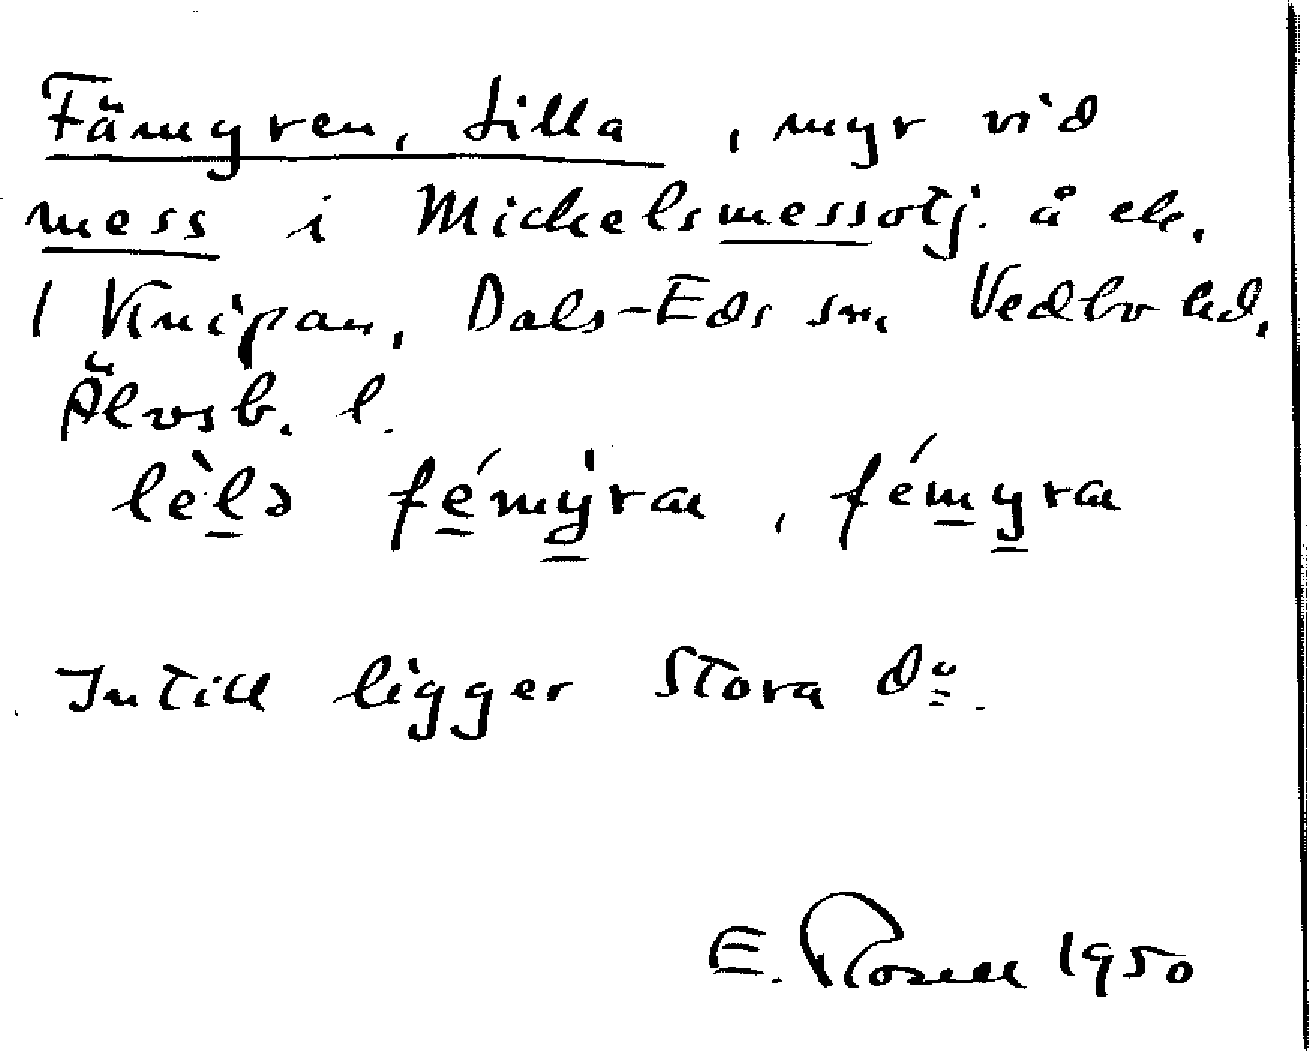 Fämyren, Lilla, myr vid
mess i Michelsmessotj. å ek.
1 Knipan, Dals-Eds sn. Vedbo hd.
Älvsb. l.
lèlə fémýra, fémyra
Intill ligger Stora do.
E. Rosell 1950